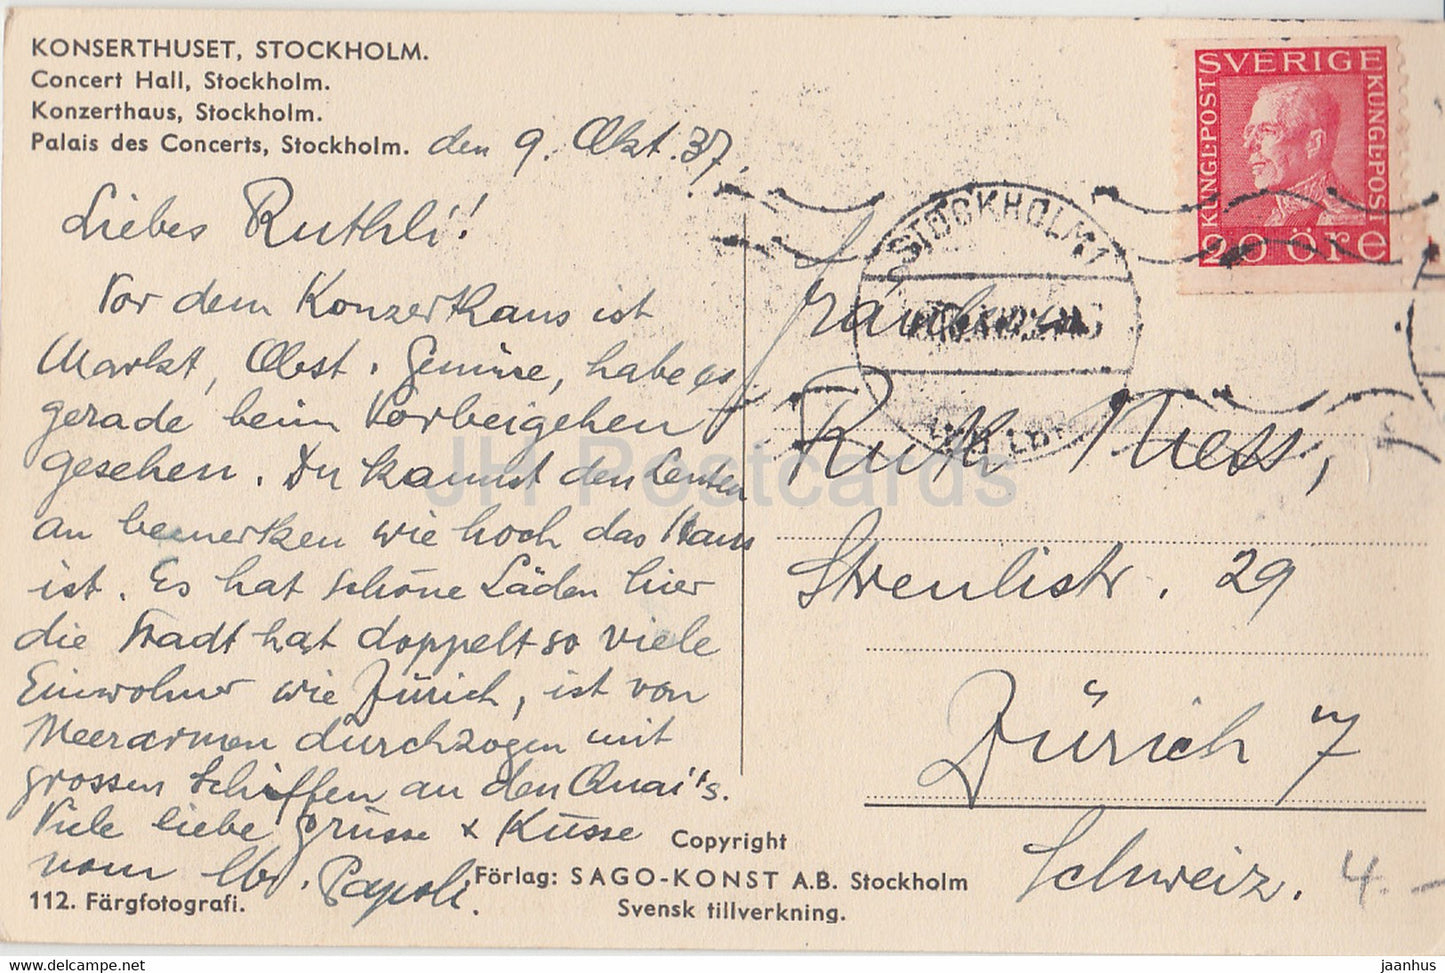 KONSERTHUSET, STOCKHOLM.
Concert Hall, Stockholm.
Konzerthaus, Stockholm.
Palais des Concerts, Stockholm.
den 9. Okt. 37.
Liebes Ruthli!
Vor dem Konzerthaus ist
Markt, Obst. Gemüse, habe es
gerade beim Vorbeigehen
gesehen. Du kannst den Leuten
an bemerken wie hoch das Haus
ist. Es hat schöne Läden hier
die Stadt hat doppelt so viele
Einwohner wie Zürich, ist von
Meerarmen durchzogen mit
grossen Schiffen an den Quai's.
Viele liebe Grüsse & Küsse
vom lb. Papoli.
112. Färgfotografi.
Copyright
Förlag: SAGO-KONST A.B. Stockholm
Svensk tillverkning.
SVERIGE
KUNGL.POST
KUNGL.POST
20 öre
STOCKHOLM 1
Fräulein
Ruth
Streulistr. 29
Zürich 7
Schweiz.
4.-
JH Postcards
jaanhus